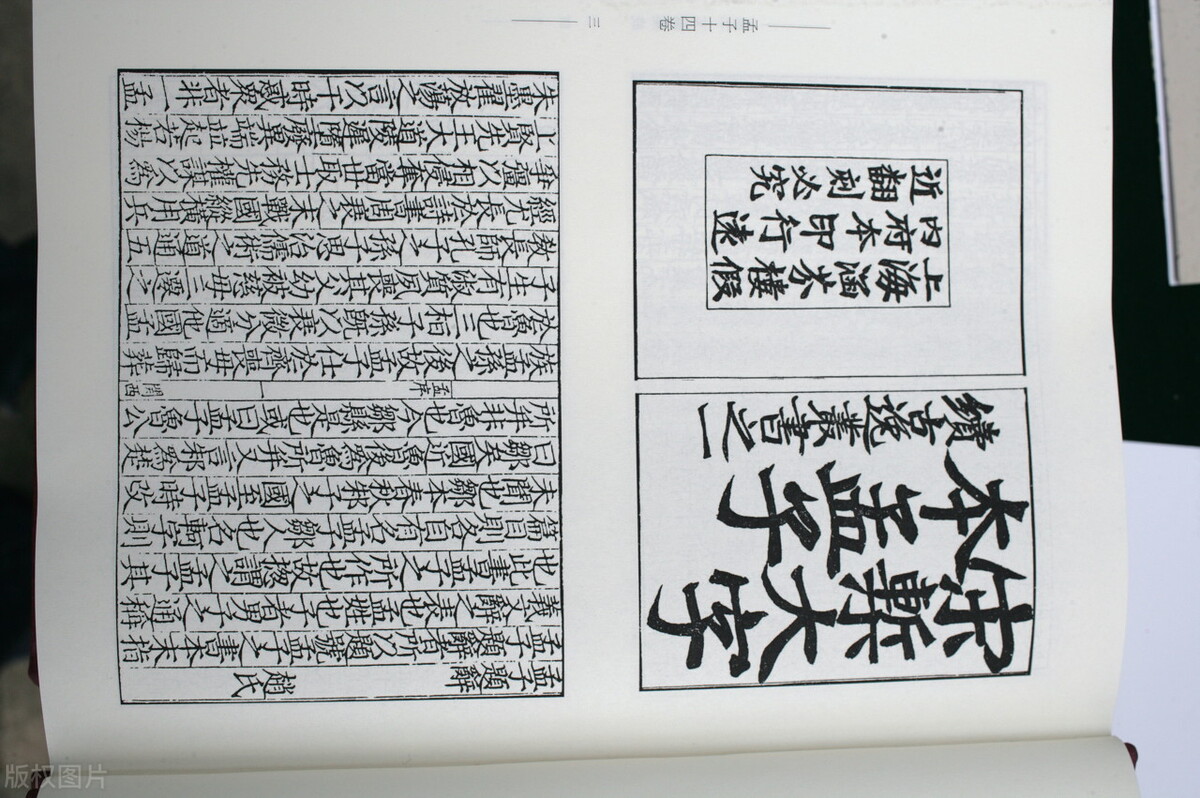 孟子十四卷
三
宋槧大字
本孟子
續古逸叢書之一
上海涵芬樓假
內府本印行遠
近翻刻必究
孟子題辭
趙氏
孟子題辭者所以題號孟子之書本末指
義文辭之表也孟姓也子者男子之通稱
也此書孟子之所作也故揔謂之孟子其
篇目則各自有名孟子鄒人也名軻字則
未聞也鄒本春秋邾子之國至孟子時改
曰鄒矣國近魯後爲魯所并又言邾爲楚
所并非魯也今鄒縣是也或曰孟子魯公
孟序
關西
族孟孫之後故孟子仕於齊喪母而歸葬
於魯也三桓子孫旣以衰微分適他國孟
子生有淑質夙喪其父幼被慈母三遷之
教長師孔子之孫子思治儒術之道通五
經尤長於詩書周衰之末戰國縱橫用兵
爭彊以相侵奪當世取士務先權謀以爲
上賢先王大道陵遲墮廢異端並起若楊
朱墨翟放蕩之言以干時惑衆者非一孟
版权图片